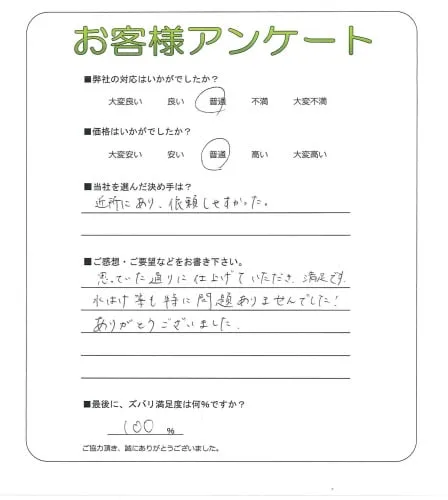 お客様アンケート
■弊社の対応はいかがでしたか?
大変良い 良い 普通 不満 大変不満
■価格はいかがでしたか?
大変安い 安い 普通 高い 大変高い
■当社を選んだ決め手は?
近所にあり、依頼しやすかった。
■ご感想・ご要望などをお書き下さい。
思っていた通りに仕上げていただき、満足です。
水はけ等も特に問題ありませんでした!
ありがとうございました。
■最後に、ズバリ満足度は何%ですか?
100 %
ご協力頂き、誠にありがとうございました。